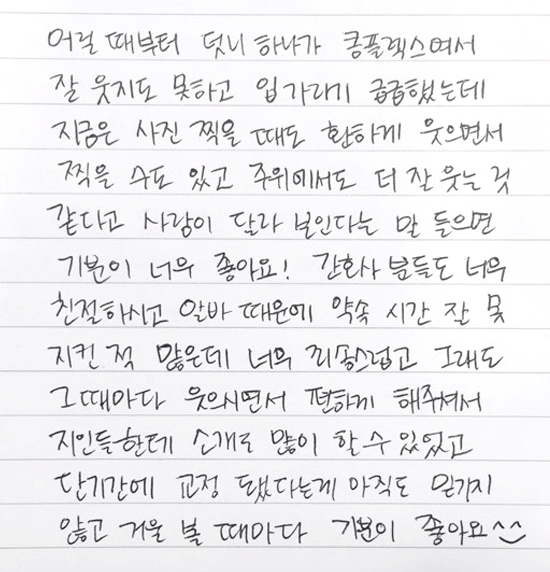 어릴 때부터 덧니 하나가 콩플렉스여서
잘 웃지도 못하고 입 가리기 급급했는데
지금은 사진 찍을 때도 환하게 웃으면서
찍을 수도 있고 주위에서도 더 잘 웃는 것
같다고 사람이 달라 보인다는 말 들으면
기분이 너무 좋아요! 간호사 분들도 너무
친절하시고 알바 때문에 약속 시간 잘 못
지킨 적 많은데 너무 죄송스럽고 그래도
그때마다 웃으시면서 편하게 해주셔서
지인들한테 소개도 많이 할 수 있었고
단기간에 교정 됐다는게 아직도 믿기지
않고 거울 볼 때마다 기분이 좋아요^^